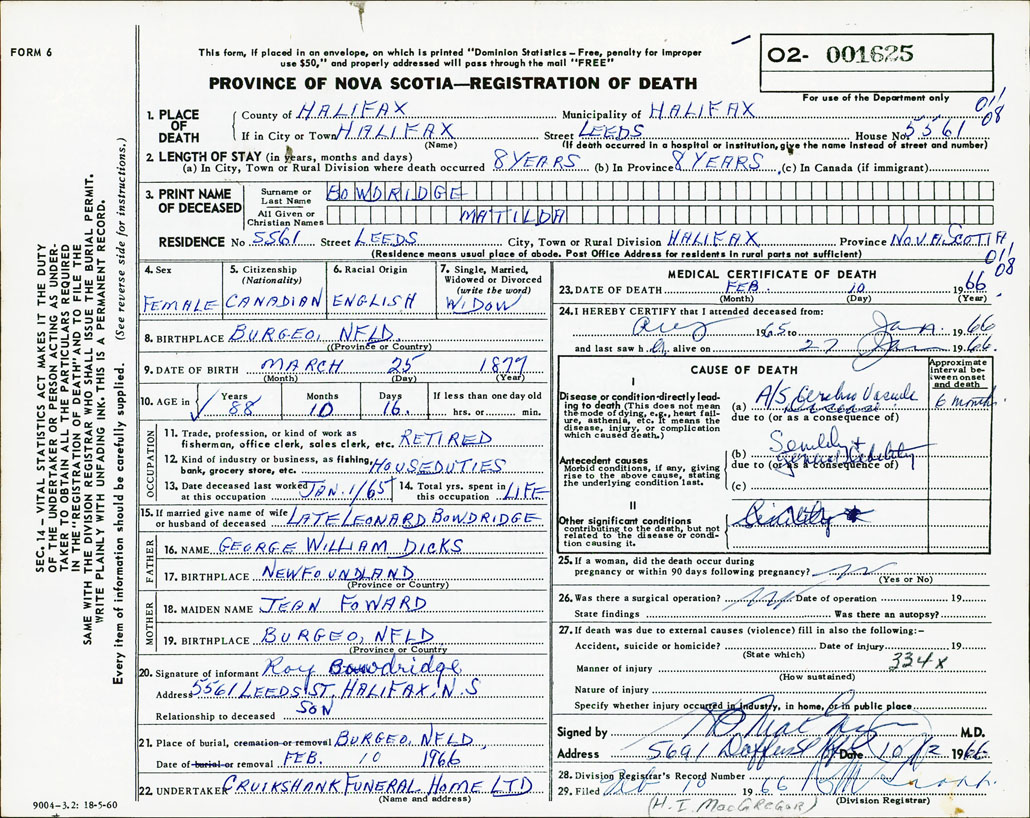 FORM 6
This form, if placed in an envelope, on which is printed "Dominion Statistics – Free, penalty for improper
use $50," and properly addressed will pass through the mail "FREE"
PROVINCE OF NOVA SCOTIA—REGISTRATION OF DEATH
02- 001625
For use of the Department only
011
08
1. PLACE OF DEATH
County of HALIFAX Municipality of HALIFAX
If in City or Town HALIFAX Street LEEDS House No. 5561
(Name) (If death occurred in a hospital or institution, give the name instead of street and number)
2. LENGTH OF STAY (in years, months and days)
(a) In City, Town or Rural Division where death occurred 8 YEARS (b) In Province 8 YEARS (c) In Canada (if immigrant)
3. PRINT NAME OF DECEASED
Surname or Last Name BOWDRIDGE
All Given or Christian Names MATILDA
RESIDENCE No. 5561 Street LEEDS City, Town or Rural Division HALIFAX Province NOVA SCOTIA
(Residence means usual place of abode. Post Office Address for residents in rural parts not sufficient)
011
08
4. Sex FEMALE
5. Citizenship (Nationality) CANADIAN
6. Racial Origin ENGLISH
7. Single, Married, Widowed or Divorced (write the word) WIDOW
8. BIRTHPLACE BURGEO, NFLD.
(Province or Country)
9. DATE OF BIRTH MARCH 25 1877
(Month) (Day) (Year)
10. AGE in Years 88 Months 10 Days 16 If less than one day old hrs. or min.
OCCUPATION
11. Trade, profession, or kind of work as
fisherman, office clerk, sales clerk, etc. RETIRED
12. Kind of industry or business, as fishing,
bank, grocery store, etc. HOUSEDUTIES
13. Date deceased last worked at this occupation JAN. 1/65
14. Total yrs. spent in this occupation LIFE
15. If married give name of wife
or husband of deceased LATE LEONARD BOWDRIDGE
FATHER
16. NAME GEORGE WILLIAM DICKS
17. BIRTHPLACE NEWFOUNDLAND
(Province or Country)
MOTHER
18. MAIDEN NAME JEAN FOWARD
19. BIRTHPLACE BURGEO, NFLD
(Province or Country)
20. Signature of informant Roy Bowdridge
Address 5561 LEEDS ST, HALIFAX, N.S
Relationship to deceased SON
21. Place of burial, cremation or removal BURGEO, NFLD,
Date of burial or removal FEB. 10 1966
22. UNDERTAKER CRUIKSHANK FUNERAL HOME LTD
(Name and address)
MEDICAL CERTIFICATE OF DEATH
23. DATE OF DEATH FEB. 10 1966
(Month) (Day) (Year)
24. I HEREBY CERTIFY that I attended deceased from:
Aug 1965 to Jan. 1966
and last saw h er alive on 27 Jan 1966
CAUSE OF DEATH
Approximate interval between onset and death
I
Disease or condition directly leading to death (This does not mean
the mode of dying, e.g., heart failure, asthenia, etc. It means the
disease, injury, or complication
which caused death.)
(a) A/S Cerebro Vascule Disease 6 months
due to (or as a consequence of)
Antecedent causes
Morbid conditions, if any, giving
rise to the above cause, stating
the underlying condition last.
(b) Senility + general debility
due to (or as a consequence of)
(c)
II
Other significant conditions
contributing to the death, but not
related to the disease or condition causing it.
Senility
25. If a woman, did the death occur during
pregnancy or within 90 days following pregnancy? no
(Yes or No)
26. Was there a surgical operation? no Date of operation 19
State findings Was there an autopsy?
27. If death was due to external causes (violence) fill in also the following:–
Accident, suicide or homicide? Date of injury 19
(State which)
Manner of injury 334x
(How sustained)
Nature of injury
Specify whether injury occurred in industry, in home, or in public place
Signed by M.D.
Address 5691 Date 10/2 1966
28. Division Registrar's Record Number
29. Filed Feb 10 1966
(Division Registrar)
(H. I. MACGREGOR)
9004-3.2: 18-5-60
SEC. 14 – VITAL STATISTICS ACT MAKES IT THE DUTY
OF THE UNDERTAKER OR PERSON ACTING AS UNDER-
TAKER TO OBTAIN ALL THE PARTICULARS REQUIRED
IN THE "REGISTRATION OF DEATH" AND TO FILE THE
SAME WITH THE DIVISION REGISTRAR WHO SHALL ISSUE THE BURIAL PERMIT.
WRITE PLAINLY WITH UNFADING INK. THIS IS A PERMANENT RECORD.
Every item of information should be carefully supplied. (See reverse side for instructions.)